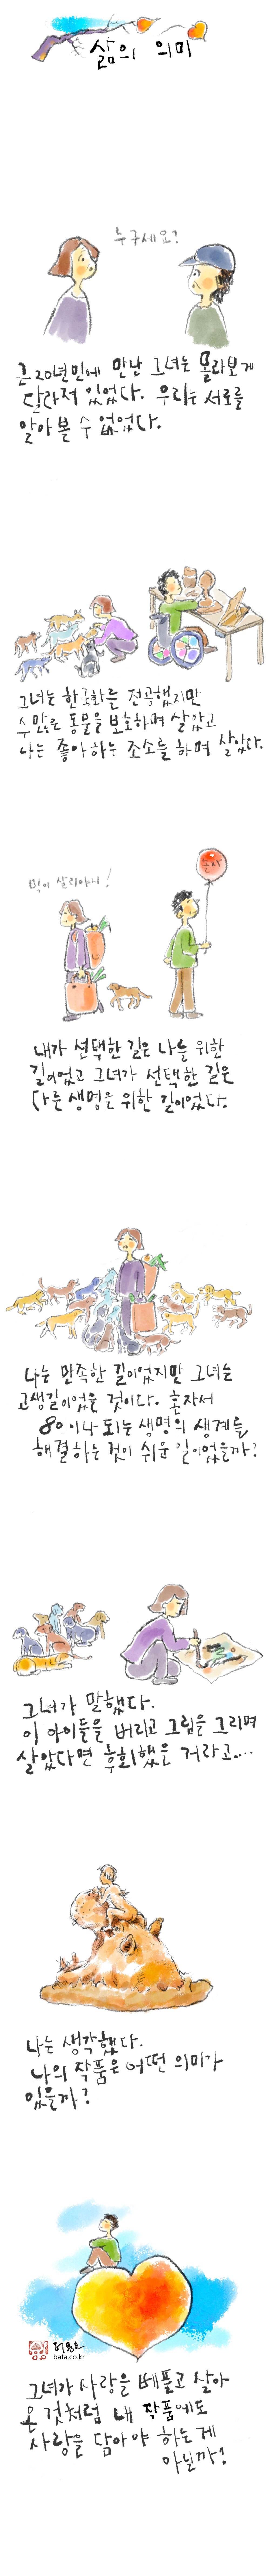 삶의 의미
누구세요?
근 20년만에 만난 그녀는 몰라보게
달라져 있었다. 우리는 서로를
알아 볼 수 없었다.
그녀는 한국화를 전공했지만
수많은 동물을 보호하며 살았고
나는 좋아하는 조소를 하며 살았다.
먹이 살리아니!
조각
내가 선택한 길은 나를 위한
길이었고 그녀가 선택한 길은
다른 생명을 위한 길이었다.
나는 만족한 길이었지만 그녀는
고생길이었을 것이다. 혼자서
80이나 되는 생명의 생계를
해결하는 것이 쉬운 일이었을까?
그녀가 말했다.
이 아이들을 버리고 그림을 그리며
살았다면 후회했을 거라고....
나는 생각했다.
나의 작품은 어떤 의미가
있을까?
bata.co.kr
그녀가 사랑을 베풀고 살아
온 것처럼 내 작품에도
사랑을 담아야 하는 게
아닐까?